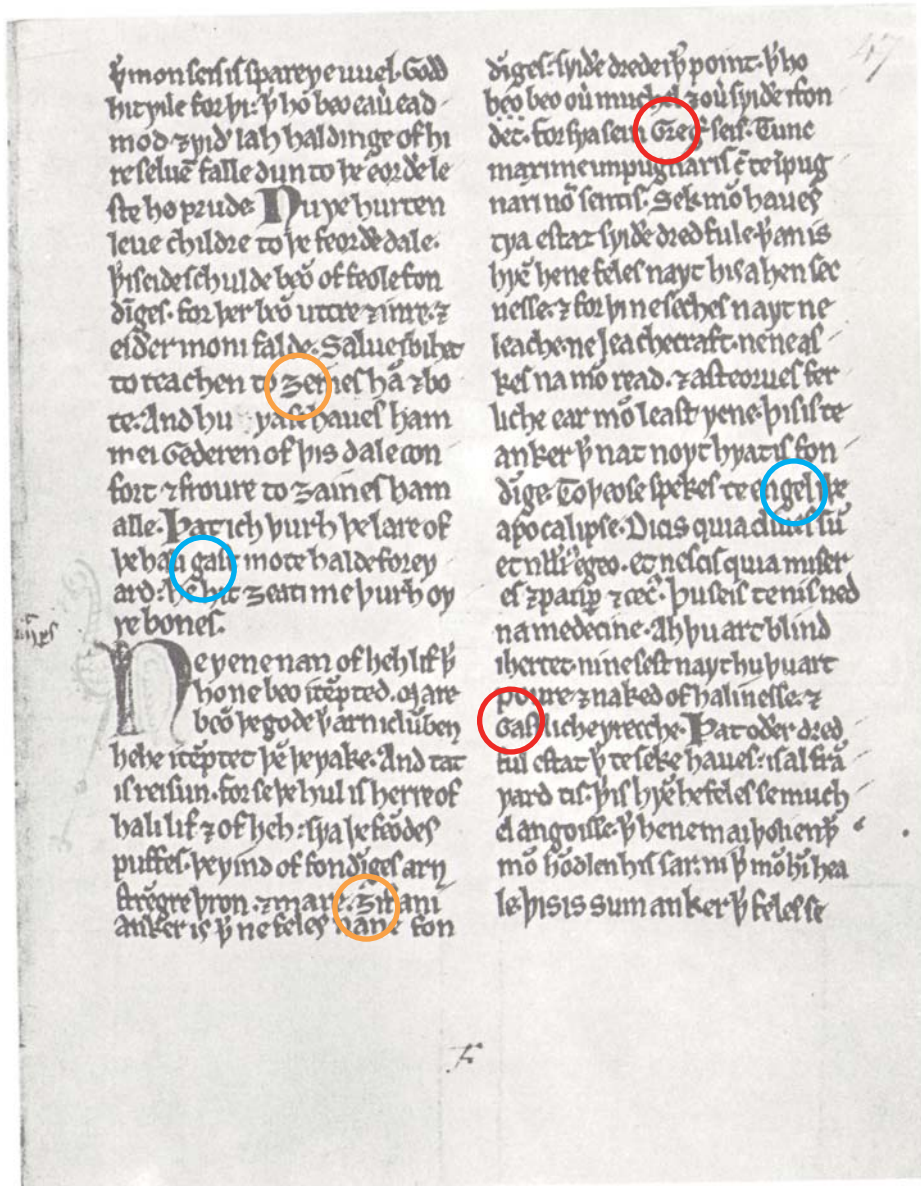 ꝥ mon seis is spareƿe uuel. Godd
hit ƿile for þi: ꝥ ho beo eauer ead
mod ⁊ ƿið lah haldinge of hi
re seluē falle dun to þe eorðe le
ste ho prude. Nu ƿe hurten
leue childre to þe feorðe dale.
ꝥ i seide schulde beō of feole fon
dīges. for þer beō uttre ⁊ inre. ⁊
eiðer moni falde. Salue
to teachen to ȝeines hā ⁊ bo
te. And hu hƿa se haues ham
mei Gederen of þis dale con
fort ⁊ froure to ȝaines ham
alle. Þat ich þurh þe lare of
þe hali gast mote halde foreƿ
ard: he hit ȝeati me þurh oƿ
re bones.
Ne ƿene nan of heh lif ꝥ
ho ne beo itēpted. Mare
beō þe gode ꝥ arn iclūben
hehe itēptet þē þe ƿake. And tat
is reisun. for se þe hul is herre of
hali lif ⁊ of heh: sƿa þe fēōdes
puffes. þe ƿind of fondīges arn
strēgre þron. ⁊ mare. Ȝif ani
anker is ꝥ ne feles nane fon
47
dīges: sƿiðe drede iꝥ point. ꝥ ho
beō beo ouer muchel ⁊ ouer sƿiðe ifon
det. for sƿa sein Greg seis. Tunc
maxime impugnaris cū te īpug
nari nō sentis. Sek mō haues
tƿa estaz sƿiðe dredfule. ꝥ an is
hƿē he ne feles naƿt his ahen sec
nesse. ⁊ for þi ne seches naƿt ne
leache. ne leachecraft. ne ne as
kes na mō read. ⁊ asteorues fer
liche ear mō least ƿene. þis is te
anker ꝥ nat noƿt hƿat is fon
dīge. To þeose spekes te engel iþe
apocalipse. Dicis quia diues sū
et nulli' egeo. et nescis quia miser
es ⁊ paup ⁊ cec'. Þu seis te nis ned
na medecine. Ah þu art blind
ihertet. ni ne sest naƿt hu þu art
poure ⁊ naked of halinesse. ⁊
Gastliche ƿrecche. Þat oðer dred
ful estat ꝥ te seke haues: is al frā
ƿard tis. ꝥ is hƿē he feles se much
el angoisse. ꝥ he ne mai þolien ꝥ
mō hōdlen his sar. ni ꝥ mō hī hea
le. þis is sum anker ꝥ feles se